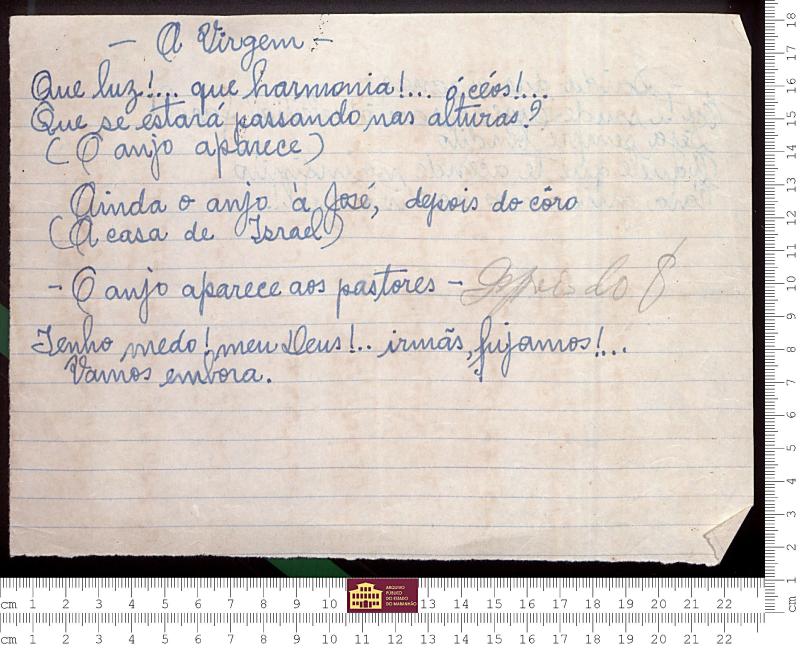 — A Virgem —
Que luz!... que harmonia!... ó, céos!...
Que se estará passando nas alturas?
(O anjo aparece)
Ainda o anjo à José, depois do côro
(A casa de Israel)
— O anjo aparece aos pastores —
Tenho medo! meu Deus!.. irmãs, fujamos!...
Vamos embora.
ARQUIVO
PÚBLICO
DO ESTADO
DO MARANHÃO
cm 1 2 3 4 5 6 7 8 9 10 13 14 15 16 17 18 19 20 21 22
cm 1 2 3 4 5 6 7 8 9 10 13 14 15 16 17 18 19 20 21 22
cm 1 2 3 4 5 6 7 8 9 10 11 12 13 14 15 16 17 18